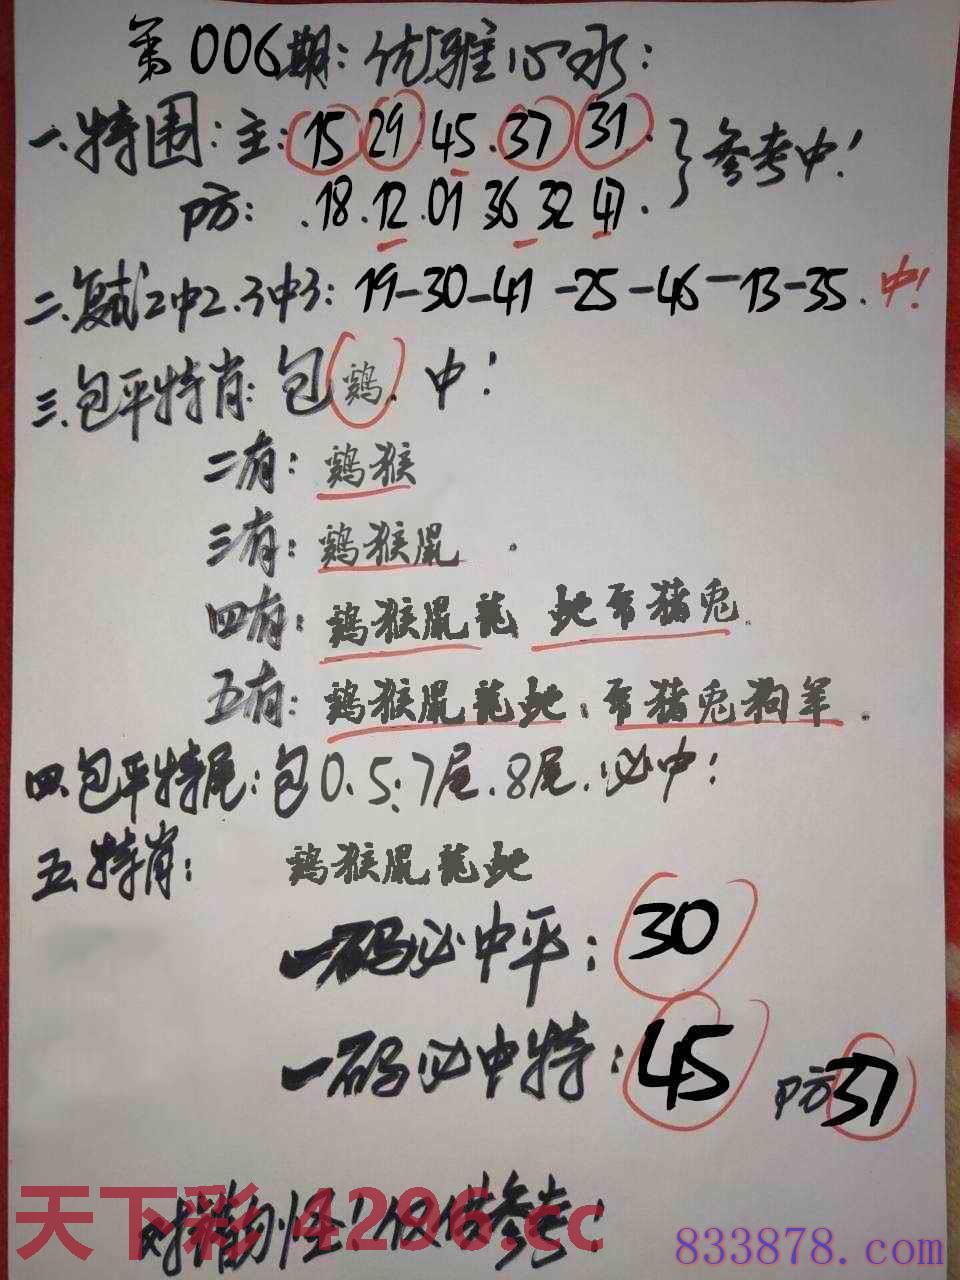 第006期:优雅心水:
一.特围:主:15 29 45.37 31.}参考中!
防:.18.12.01 36 32 47.
二.复式2中2.3中3:19-30-41-25-46-13-35.中!
三.包平特肖:包鷄.中!
二有:鷄猴
三有:鷄猴鼠.
四有:鷄猴鼠龍 虵馬猪兎.
五有:鷄猴鼠龍虵:馬猪兎狗羊.
四.包平特尾:包0.5:7尾.8尾.必中!
五.特肖:鷄猴鼠龍虵
一码必中平:30
一码必中特:45 防37
对措勿怪!仅供参考!
天下彩 4296.cc
833878.com